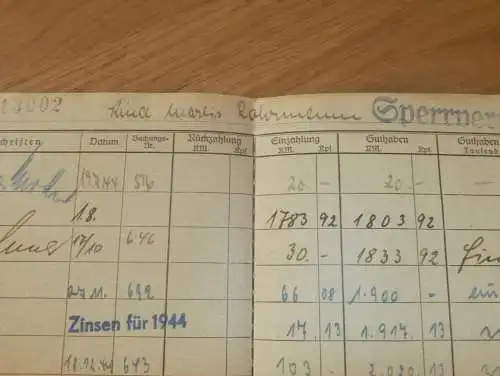 14002 Kind Maria Sperrver
schriften Datum Buchungs-Nr. Rückzahlung RM. Rpf. Einzahlung RM. Rpf. Guthaben RM. Rpf. Guthaben Tausend
19.7.44 516 20 - 20 -
1.8. 1783 92 1803 92
17/10 646 30. - 1833 92
27.11. 692 66 08 1.900 -
Zinsen für 1944 17. 13 1.917. 13
18.12.44 643 103 - 2.020 13